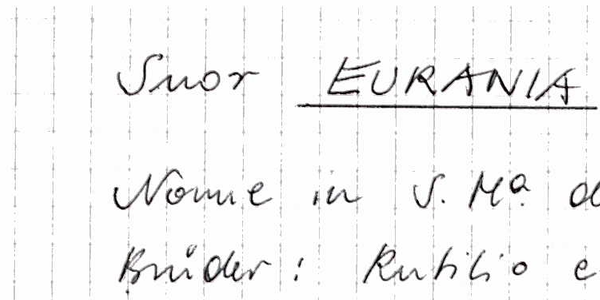 Suor EURANIA
Nonne in S. Mª. de
Brüder: Rutilio e